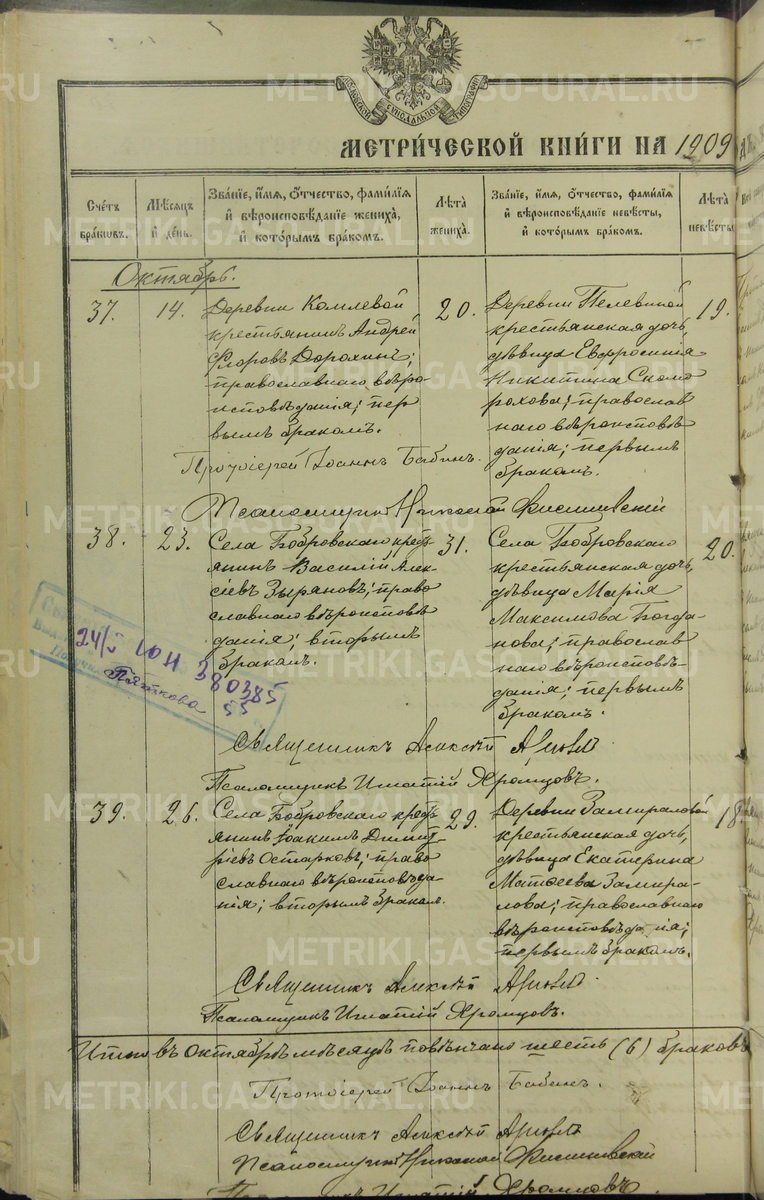 МОСКОВСКОЙ СѴНОДАЛЬНОЙ ТИПОГРАФІИ
МЕТРИ́ЧЕСКОЙ КНИ́ГИ НА 1909
Счетъ браковъ.
Мѣсяцъ и день.
Званіе, имя, отчество, фамилія и вѣроисповѣданіе жениха, и которымъ бракомъ.
Лѣта жениха.
Званіе, имя, отчество, фамилія и вѣроисповѣданіе невѣсты, и которымъ бракомъ.
Лѣта невѣсты
Октябрь.
37. 14.
Деревни Комлевой
крестьянинъ Андрей
Флоровъ Дорохинъ;
православнаго вѣро-
исповѣданія; пер
вымъ бракомъ.
20.
Деревни Пелевиной
крестьянская дочь,
дѣвица Евфросинія
Никитина Скомо
рохова; православ
наго вѣроисповѣ
данія; первымъ
бракомъ.
19.
Протоіерей Іоаннъ Бабинъ.
Псаломщикъ Николай
38. 23.
Села Бобровскаго крест
янинъ Василій Алек-
сіевъ Зыряновъ; право
славнаго вѣроисповѣ
данія; вторымъ
бракомъ.
31.
Села Бобровскаго
крестьянская дочь,
дѣвица Марія
Максимова Богда-
нова; православ
наго вѣроисповѣ-
данія; первымъ
бракомъ.
20.
24/V ЮН 380385
Пяткова 55
Священникъ Алексѣй
Псаломщикъ Игнатій Хромцовъ.
39. 26.
Села Бобровскаго крест
янинъ Іоакимъ Димит
ріевъ Остарковъ; право
славнаго вѣроисповѣда
нія; вторымъ бракомъ.
29.
Деревни Замираловой
крестьянская дочь,
дѣвица Екатерина
Матѳеева Замира-
лова; православнаго
вѣроисповѣданія;
первымъ бракомъ.
18.
Священникъ Алексѣй
Псаломщикъ Игнатій Хромцовъ.
Итого въ октябрѣ мѣсяцѣ повѣнчано шесть (6) браковъ
Протоіерей Іоаннъ Бабинъ.
Священникъ Алексѣй
Псаломщикъ Николай
Псаломщикъ Игнатій Хромцовъ
METRIKI.GASO-URAL.RU